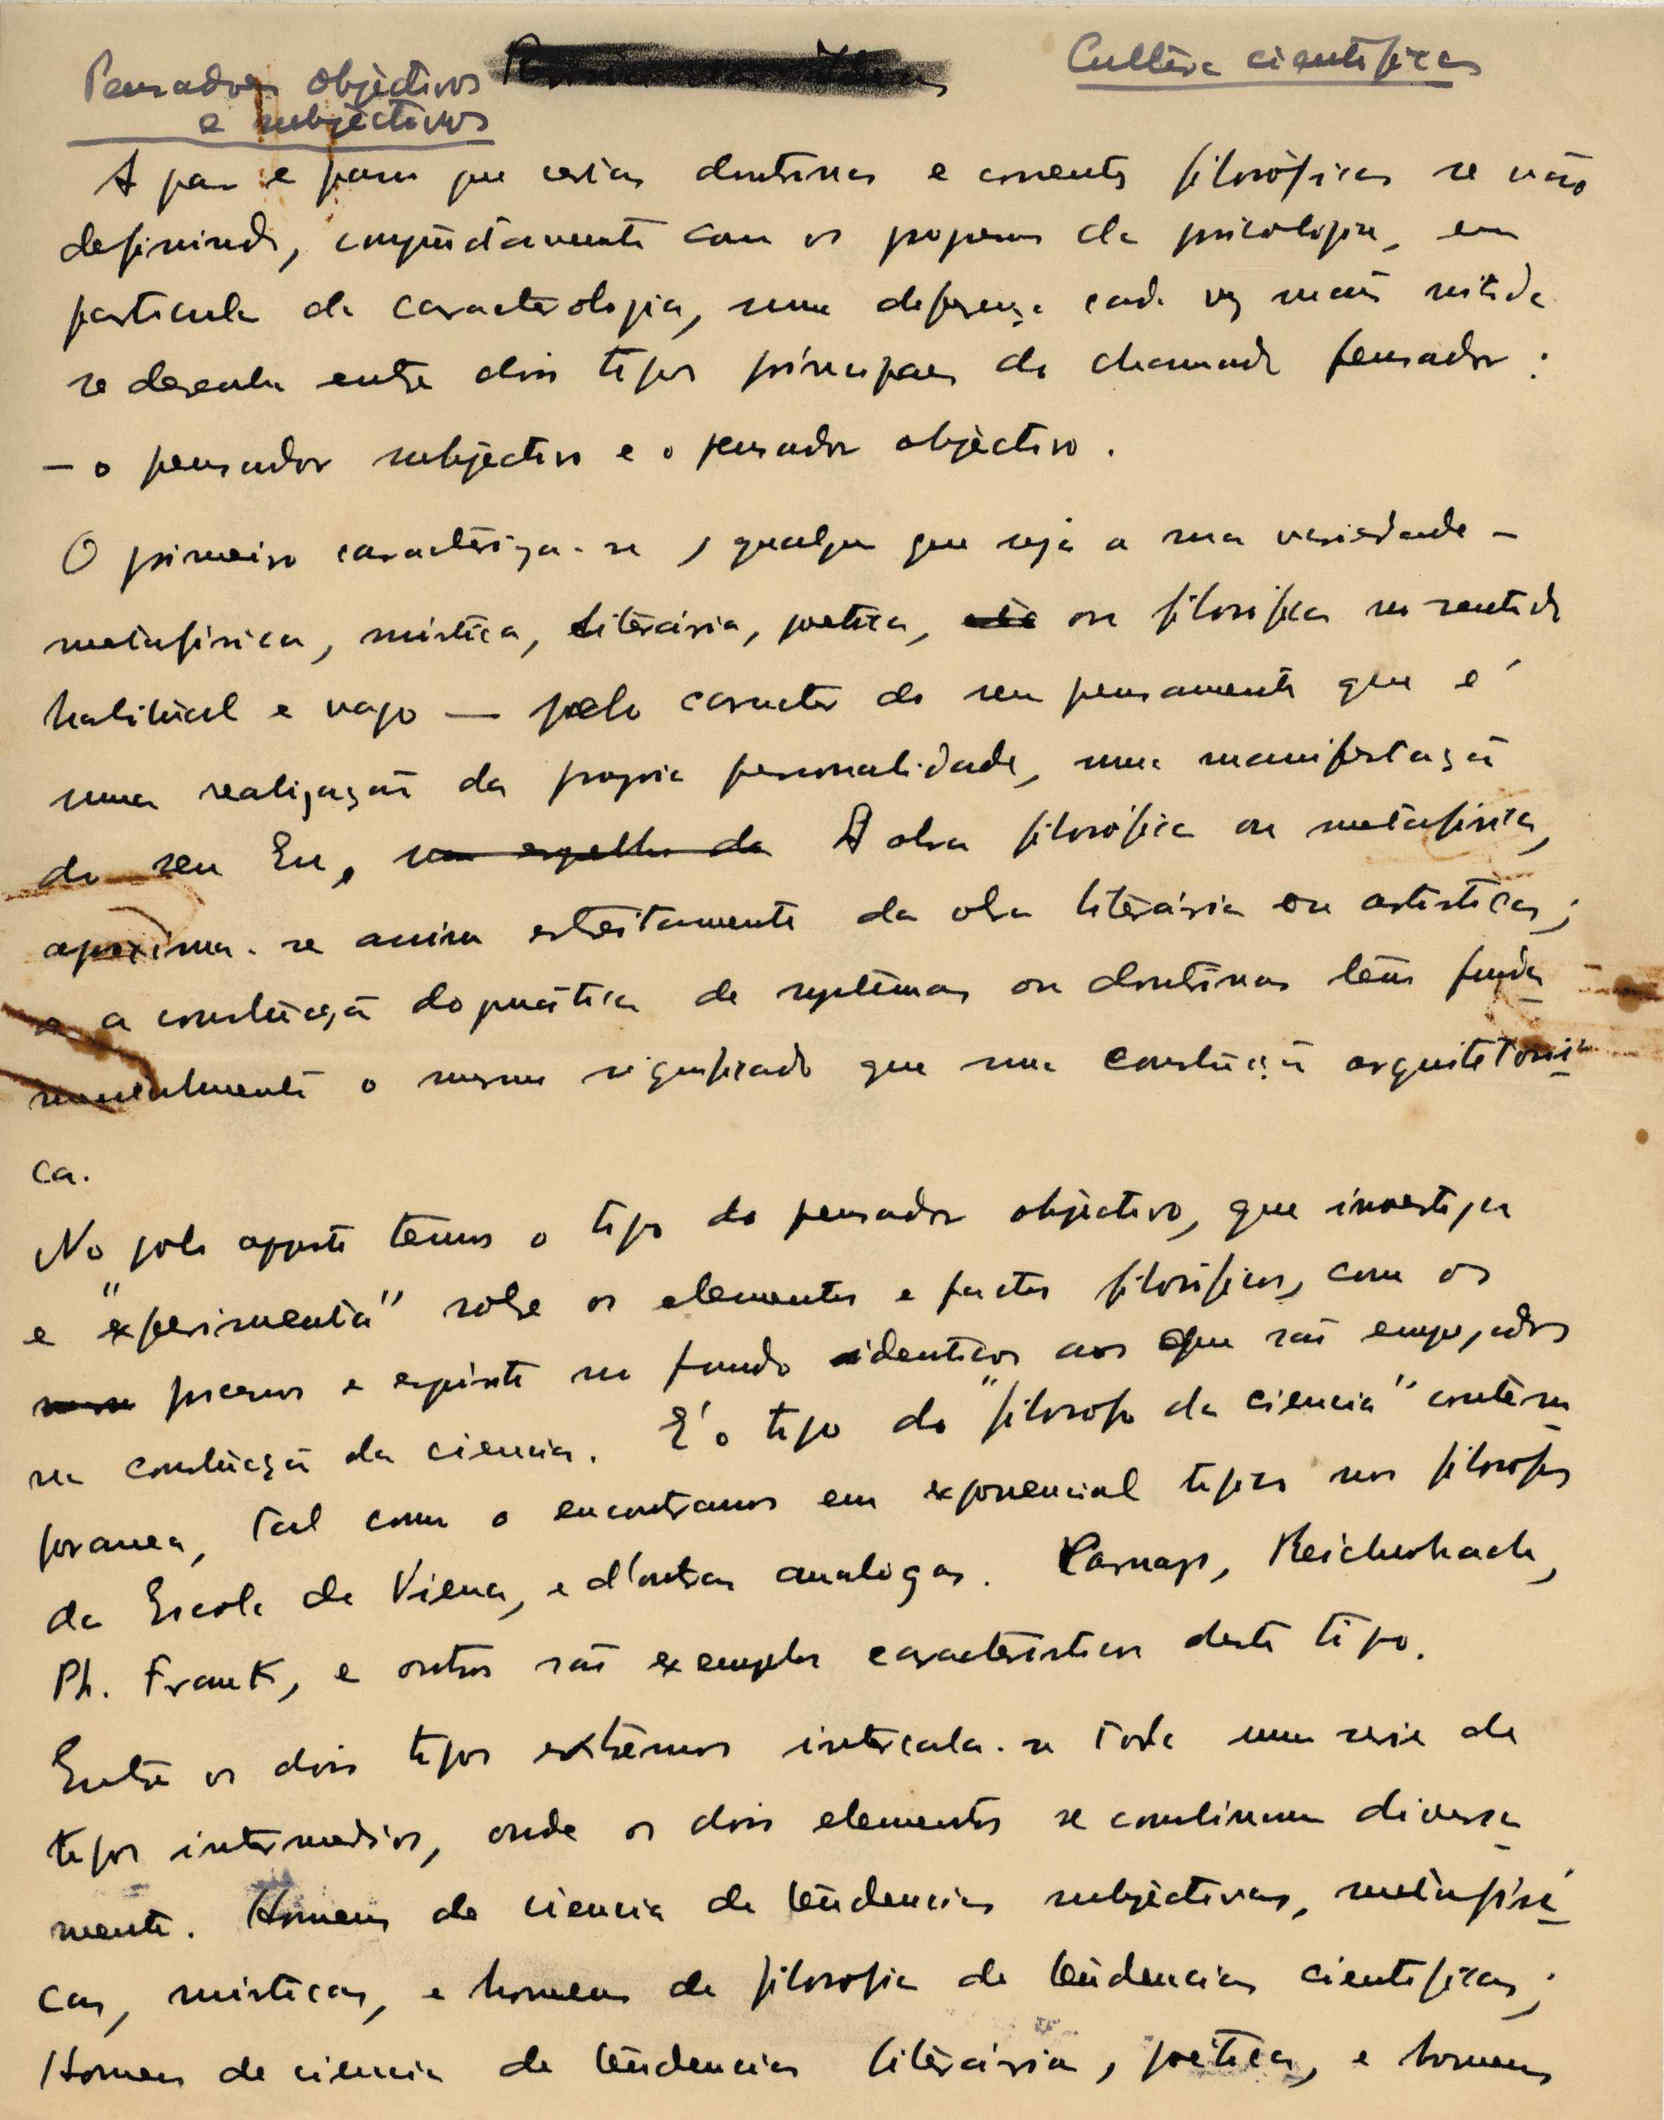 Pensadores objectivos
e subjectivos
Cultura cientifica
A par e passo que várias doutrinas e correntes filosóficas se vão
definindo, conjuntamente com os progressos da psicologia, em
particular da caracterologia, uma diferença cada vez mais nitida
se desenha entre dois tipos principaes do chamado pensador:
– o pensador subjectivo e o pensador objectivo.
O primeiro caracteriza-se, qualquer que seja a sua variedade –
metafísica, mística, literária, poetica, ou filosófica no sentido
habitual e vago — pelo caracter do seu pensamento que é
uma realização da propria personalidade, uma manifestação
do seu Eu, A obra filosófica ou metafísica,
aproxima-se assim estreitamente da obra literária ou artistica;
a construção dogmática de systemas ou doutrinas têm funda
mentalmente o mesmo significado que uma construção arquitetoni
ca.
No polo opposto temos o tipo do pensador objectivo, que investiga
e "experimenta" sobre os elementos e factos filosóficos, com os
processos e espirito no fundo identicos aos que são empregados
na construção da ciencia. E' o tipo do "filosofo da ciencia" contem
poranea, tal como o encontramos em exponencial tipico nos filosofos
da Escola de Viena, e d'outras analogas. Carnap, Reichenbach,
Ph. Frank, e outros são exemplos caracteristicos deste tipo.
Entre os dois tipos extremos intercala-se toda uma serie de
tipos intermedios, onde os dois elementos se combinam diversa
mente. Homens de ciencia de tendencias subjectivas, metafísi
cas, misticas, e homens de filosofia de tendencias cientificas;
Homens de ciencia de tendencias literária, poética, e homens